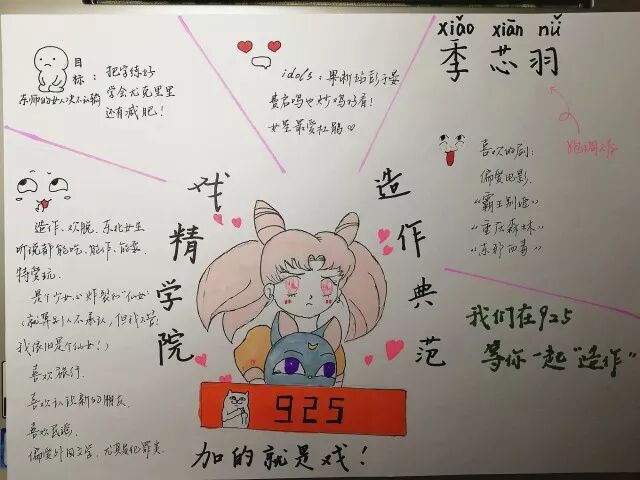 目标：把字练好
学会尤克里里
还有减肥！
东师的女人决不认输
idols：果断给彭于晏
黄启鸣也炒鸡好看！
女星最爱杜鹃♡
xiǎo xiān nǚ
季芯羽
喜欢的剧：
偏爱电影
“霸王别姬”
“重庆森林”
“东邪西毒”
造作、欢脱、东北女生
听说都能吃、能作、能耍
特爱玩、
是个少女心炸裂的“仙女”
（就算别人不承认，但我不管！
我依旧是个仙女！）
喜欢旅行、
喜欢认识新的朋友
喜欢民谣、
偏爱外国文学、尤其是犯罪类
戏精学院
造作典范
925
加的就是戏！
我们在925
等你一起“造作”